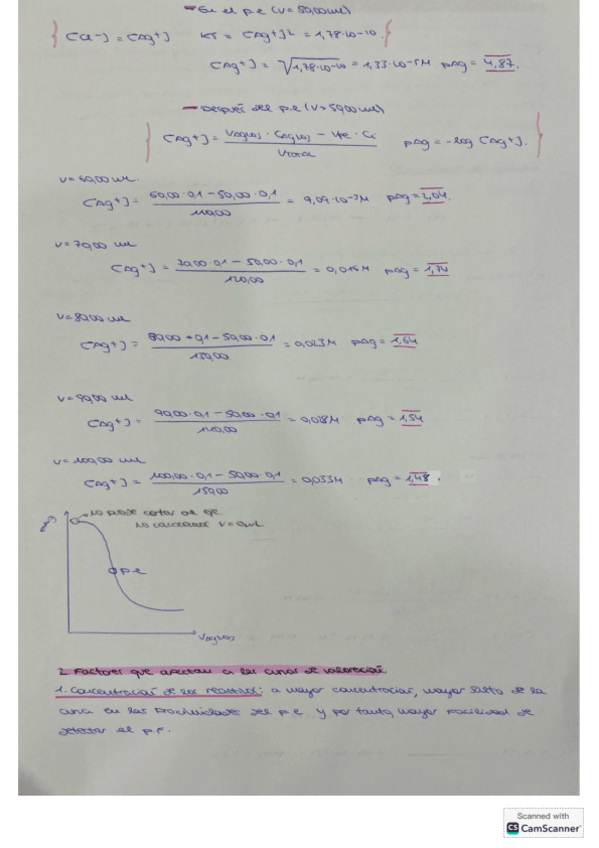 - En el p.e (V = 50,00 mL)
[Cl-] = [Ag+]   Ks = [Ag+]² = 1,78·10-10.
[Ag+] = √1,78·10-10 = 1,33·10-5M   pAg = 4,87.
- Después del p.e (V > 50,00 mL)
[Ag+] = VAgNO3 · CAgNO3 - Vpe · Ci / VTOTAL   pAg = -log [Ag+].
V = 60,00 mL.
[Ag+] = 60,00 · 0,1 - 50,00 · 0,1 / 110,00 = 9,09·10-3M   pAg = 2,04.
V = 70,00 mL
[Ag+] = 70,00 · 0,1 - 50,00 · 0,1 / 120,00 = 0,016M   pAg = 1,74
V = 80,00 mL
[Ag+] = 80,00 · 0,1 - 50,00 · 0,1 / 130,00 = 0,023M   pAg = 1,64
V = 90,00 mL
[Ag+] = 90,00 · 0,1 - 50,00 · 0,1 / 140,00 = 0,028M   pAg = 1,54
V = 100,00 mL
[Ag+] = 100,00 · 0,1 - 50,00 · 0,1 / 150,00 = 0,033M   pAg = 1,48.
no puede cortar al eje
no conocemos V = 0 mL
p.e
VAgNO3
2. Factores que afectan a las curvas de valoración.
1. Concentración de los reactivos: a mayor concentración, mayor salto de la
curva en las proximidades del p.e y por tanto, mayor facilidad de
detectar el p.f.
Scanned with
CS CamScanner